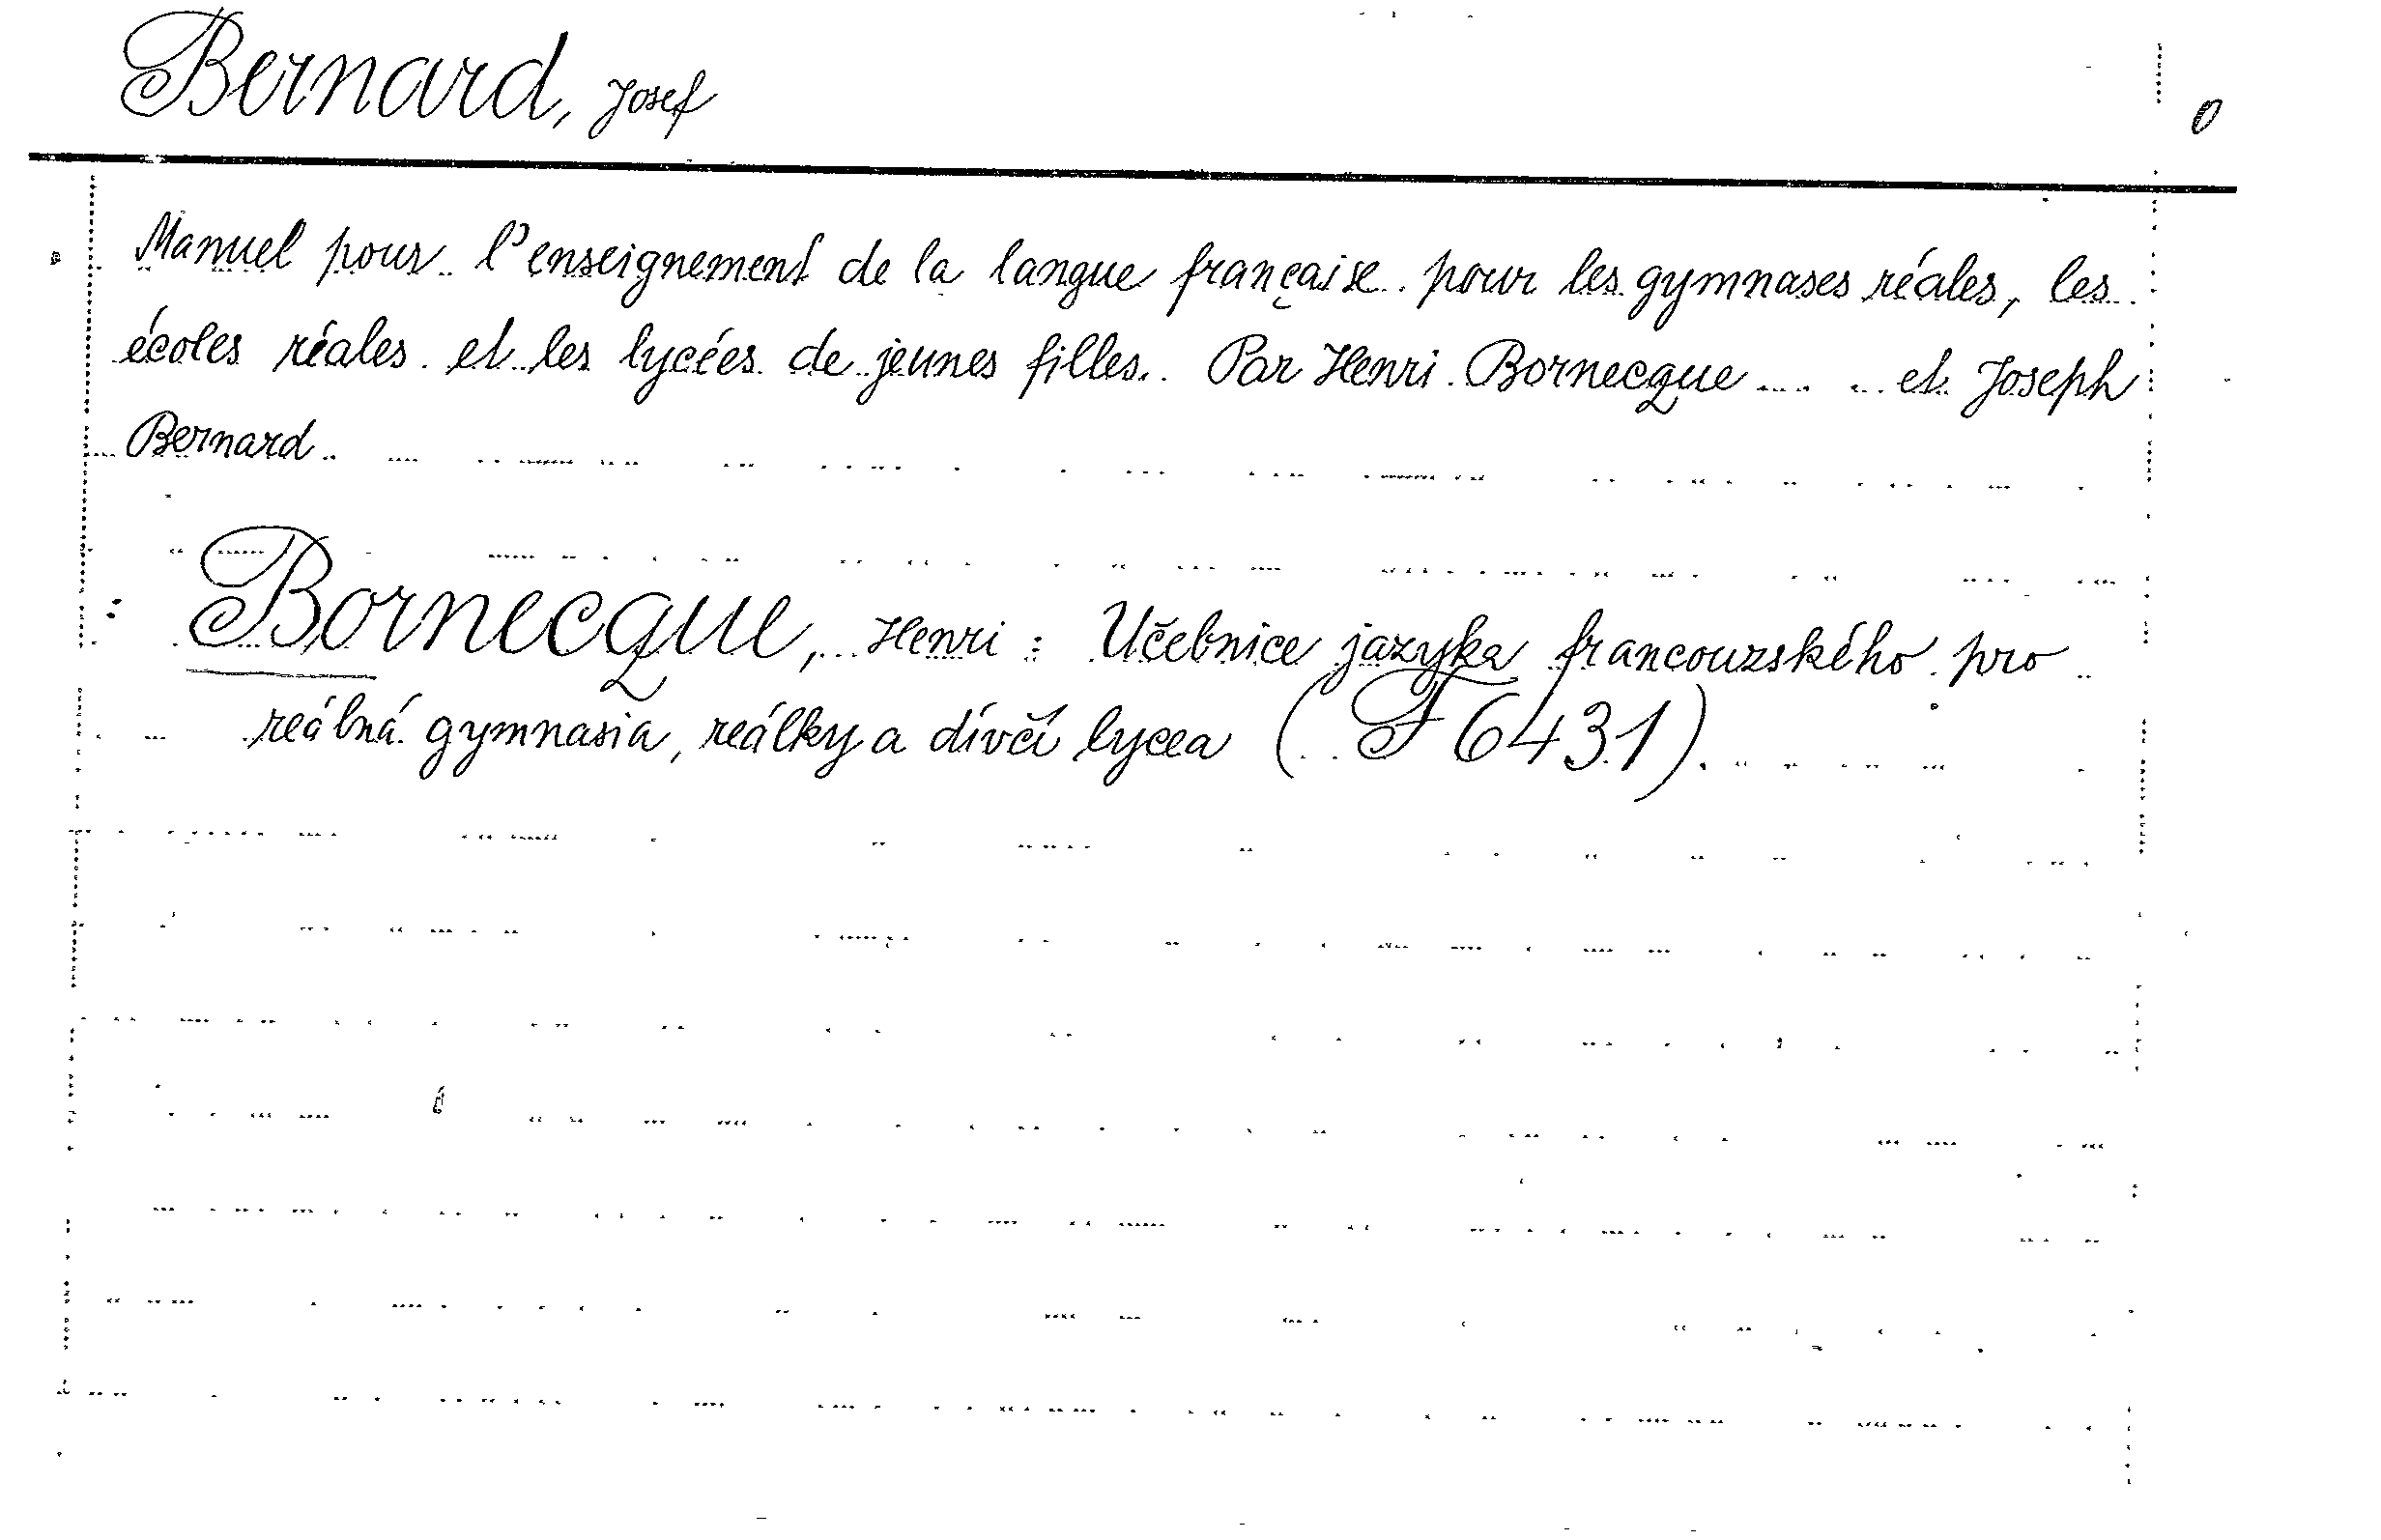 Bernard, Josef
0
Manuel pour l'enseignement de la langue française pour les gymnases réales, les
écoles réales et les lycées de jeunes filles. Par Henri Bornecque ... et Joseph
Bernard.
Bornecque, Henri: Učebnice jazyka francouzského pro
reálná gymnasia, reálky a dívčí lycea (F 6431).